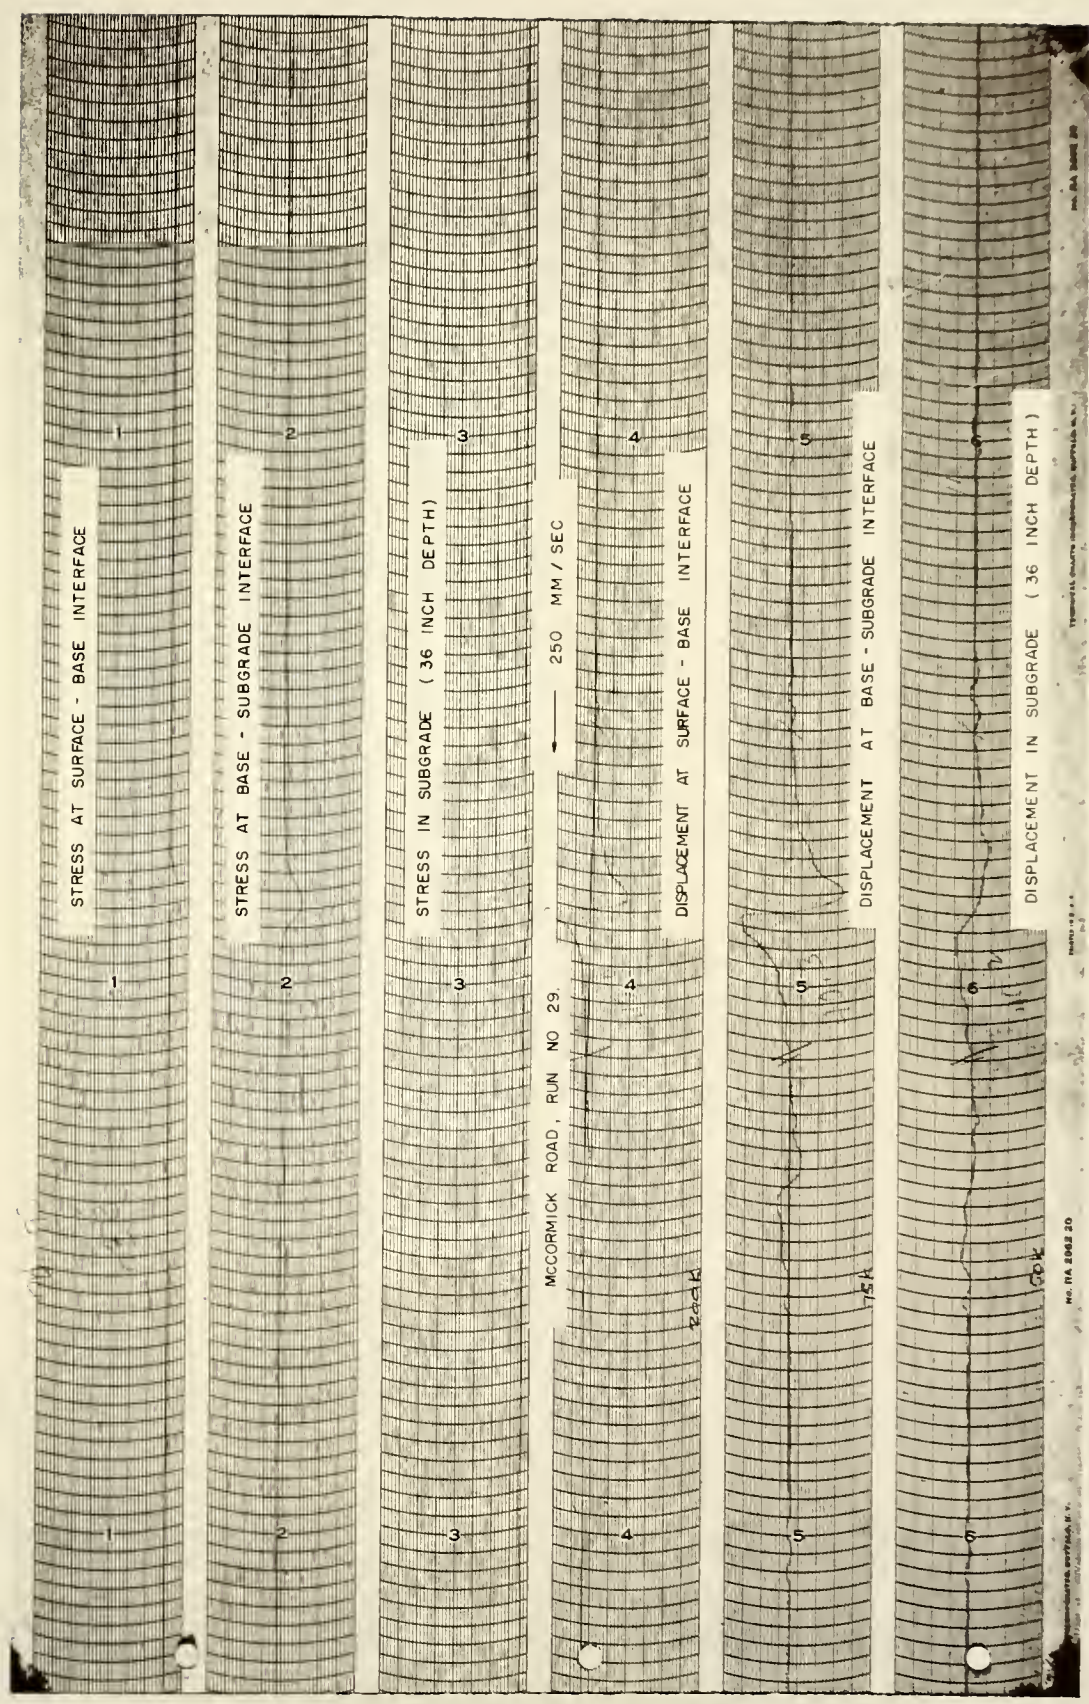 STRESS AT SURFACE - BASE INTERFACE
STRESS AT BASE - SUBGRADE INTERFACE
STRESS IN SUBGRADE ( 36 INCH DEPTH)
250 MM / SEC
MCCORMICK ROAD, RUN NO 29.
DISPLACEMENT AT SURFACE - BASE INTERFACE
DISPLACEMENT AT BASE - SUBGRADE INTERFACE
DISPLACEMENT IN SUBGRADE ( 36 INCH DEPTH )
1 2 3 4 5 6
1 2 3 4 5 6
1 2 3 4 5 6
200K
75K
50K
No. RA 2062 20